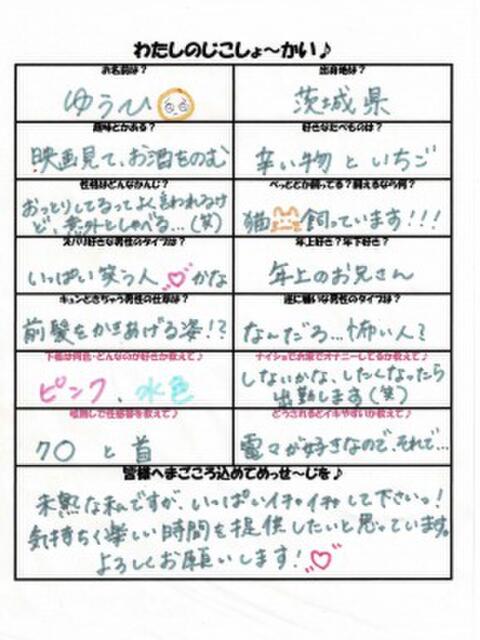 わたしのじこしょ〜かい♪
お名前は？
ゆうひ
出身地は？
茨城県
趣味とかある？
映画見て、お酒をのむ
好きなたべものは？
辛い物といちご
性格はどんなかんじ？
おっとりしてるってよく言われるけ
ど、意外としゃべる…(笑)
ぺっととか飼ってる？飼えるなら何？
猫 飼っています!!!
ズバリ好きな男性のタイプは？
いっぱい笑う人 かな
年上好き？年下好き？
年上のお兄さん
キュンときちゃう男性の仕草は？
前髪をかきあげる姿!?
逆に嫌いな男性のタイプは？
なんだろ…怖い人？
下着は何色・どんなのが好きか教えて♪
ピンク、水色
ナイショでお家でオナニーしてるか教えて♪
しないかな、したくなったら
出勤します(笑)
暗黙して性感帯を教えて♪
クロ と 首
どうされるとイキやすいか教えて♪
電々が好きなので、それで…
皆様へまごころ込めてめっせ〜じを♪
未熟な私ですが、いっぱいイチャイチャして下さいっ！
気持ちく楽しい時間を提供したいと思っています。
よろしくお願いします！